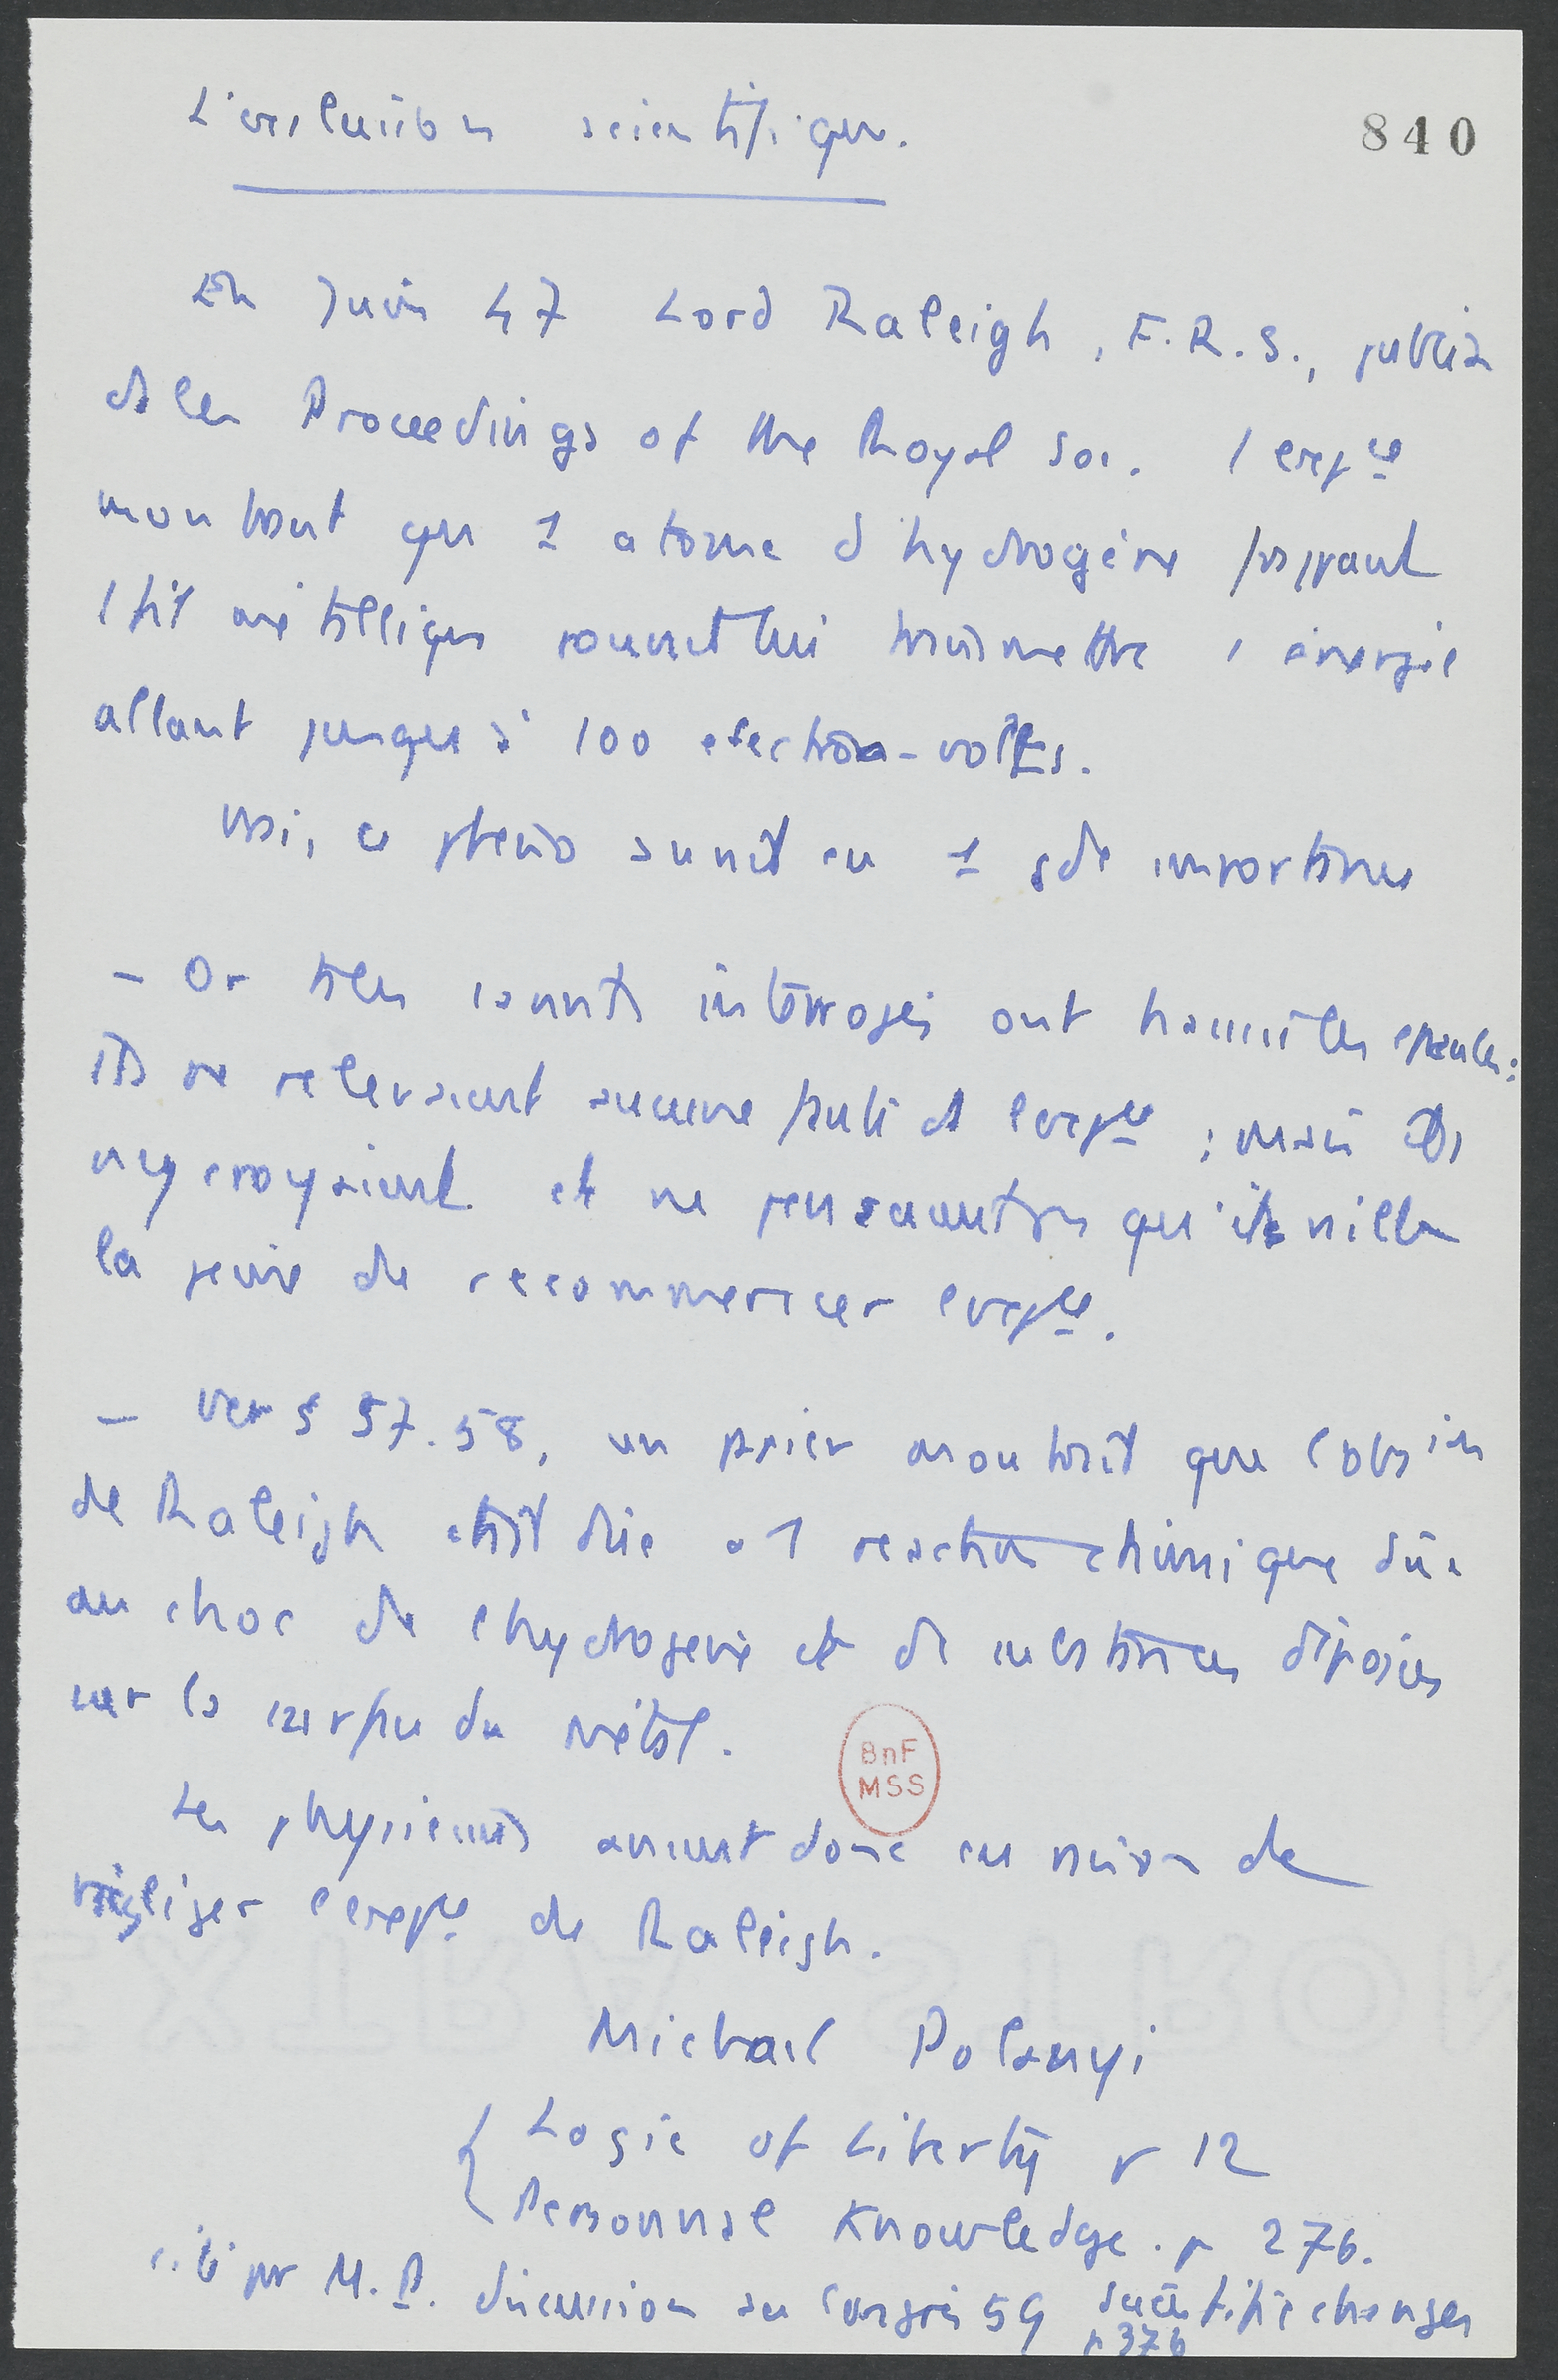 L'évolution scientifique.
840
En Juin 47 Lord Raleigh, F.R.S., publia
ds les Proceedings of the Royal Soc. 1 expce
montrant que 1 atome d'hydrogène frappant
1 fil métallique pouvait lui transmettre 1 énergie
allant jusqu'à 100 electron-volts.
Vrai, ce pheno aurait eu 1 gde importance
- Or ts les savants interrogés ont haussé les épaules :
ils ne relevaient aucune faute ds l'expce ; mais ils
n'y croyaient et ne pensaient pas qu'il vaille
la peine de recommencer l'expce.
- Vers 57.58, un papier montrait que l'obsion
de Raleigh était due à 1 reaction chimique dûe
au choc de l'hydrogene et de substances déposées
sur la surface du métal.
Les physiciens avaient donc eu raison de
négliger l'expce de Raleigh.
Michael Polanyi
Logic of Liberty p 12
Personnal Knowledge. p 276.
cité par M.P. discussion au congrès 59 Scientific changes
p 376
BnF
MSS
EXTRA STRON